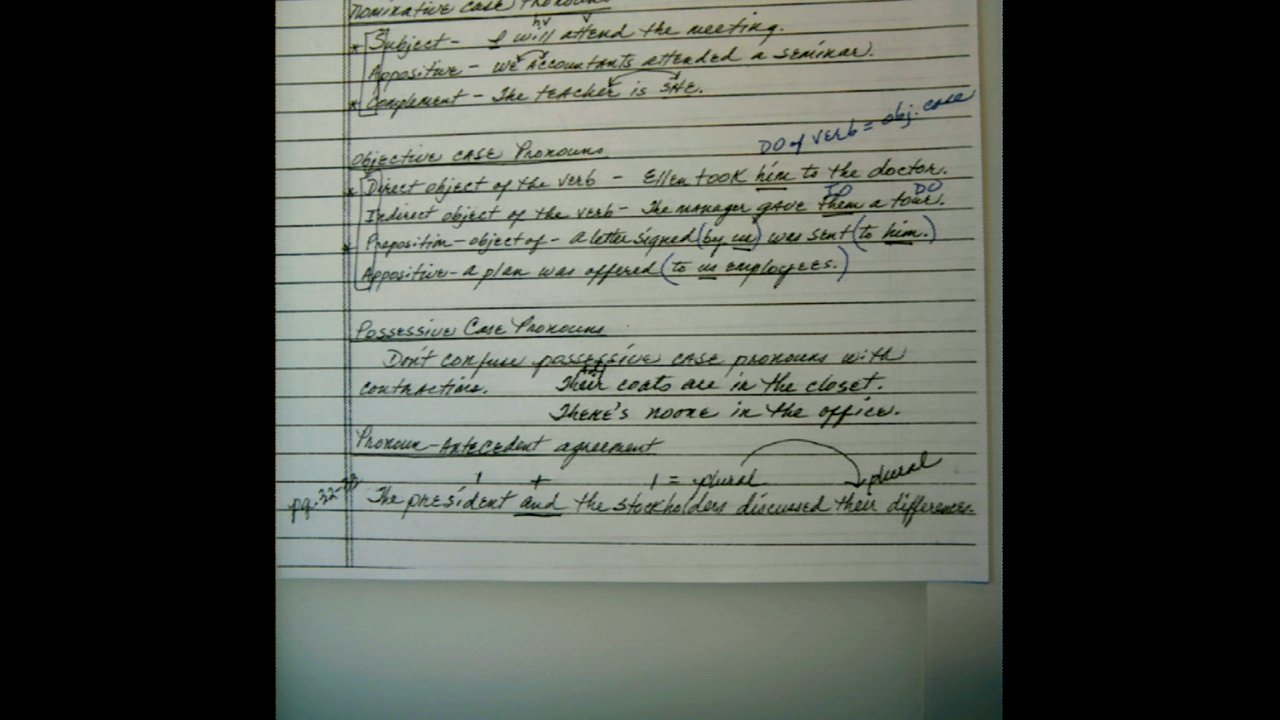 Nominative Case Pronouns
hv v
* Subject - I will attend the meeting.
Appositive - We Accountants attended a seminar.
* Complement - The teacher is SHE.
DO of verb = obj. case
Objective Case Pronouns
* Direct object of the verb - Ellen took him to the doctor.
IO DO
Indirect object of the verb - The manager gave them a tour.
* Preposition - object of - A letter signed (by us) was sent (to him.)
Appositive - a plan was offered (to us employees.)
Possessive Case Pronouns
Don't confuse possessive case pronouns with
Adj
contractions. Their coats are in the closet.
There's no one in the office.
Pronoun-Antecedent agreement
1 + 1 = plural plural
The president and the stockholders discussed their differences.